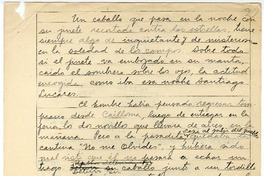 Un caballo que pasa en la noche con
su jinete recortado contra las estrellas, tiene
siempre algo de inquietante y de misterioso
en la soledad de los campos. Sobre todo
si el jinete va embozado en su manta,
caído el sombrero sobre los ojos, la actitud
encogida, como iba esa noche Santiago
Lucares.
El hombre había pensado regresar tem
prano desde Cailloma, luego de entregar en la
feria los dos novillos que
mañana. Pero
cantina "No me Olvides" y hubiera sido
mal a echar un
trago
caballo junto a un tordillo